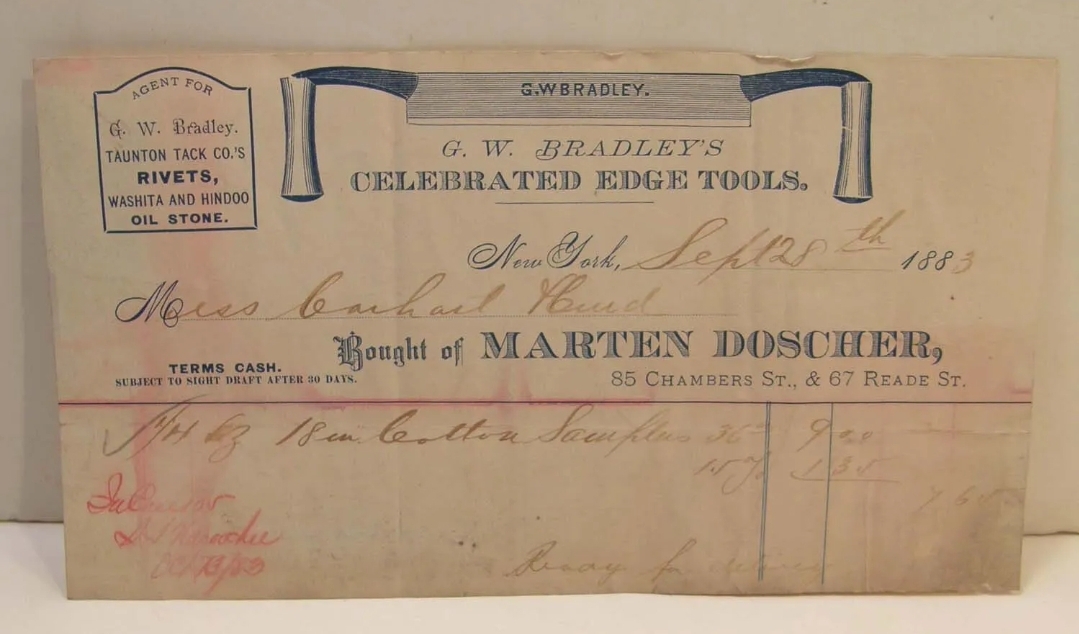 AGENT FOR
G. W. Bradley.
TAUNTON TACK CO.'S
RIVETS,
WASHITA AND HINDOO
OIL STONE.
G.W BRADLEY.
G. W. BRADLEY'S
CELEBRATED EDGE TOOLS.
New York, Sept 28th 1883
Mess Carhart
Bought of MARTEN DOSCHER,
TERMS CASH.
SUBJECT TO SIGHT DRAFT AFTER 30 DAYS.
85 CHAMBERS ST., & 67 READE ST.
1/4 18 in Cotton 36 9 00
15 % 1 35
7 65
Ready for